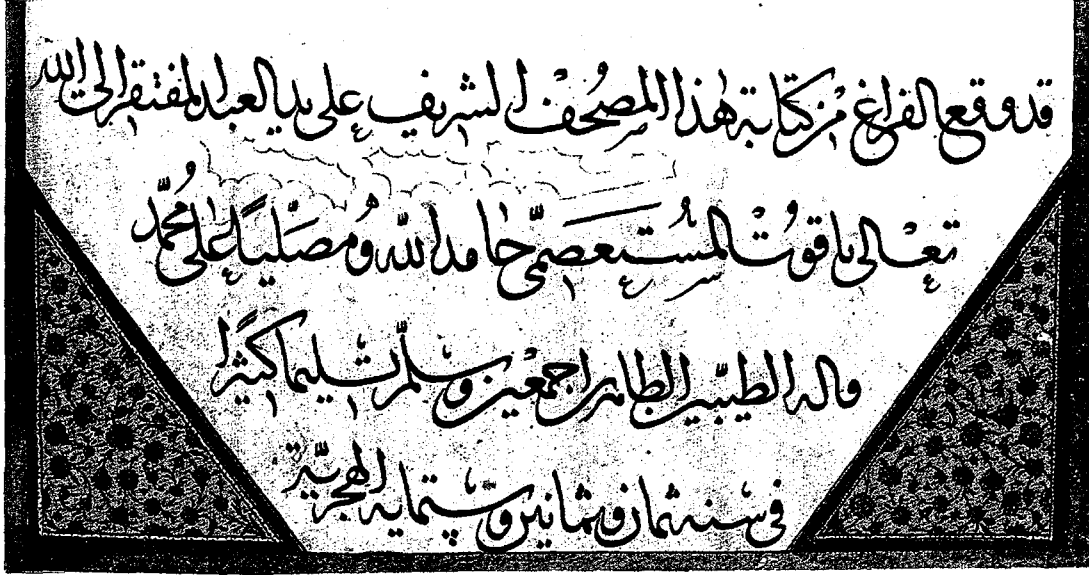 قد وقع الفراغ من كتابة هٰذا المصحف الشريف على يد العبد المفتقر الى الله
تعالى ياقوت المستعصمي حامدا لله ومصليا على محمد
واله الطيبين الطاهرين اجمعين وسلم تسليما كثيرا
في سنه ثمان وثمانين وستمايه الهجرية